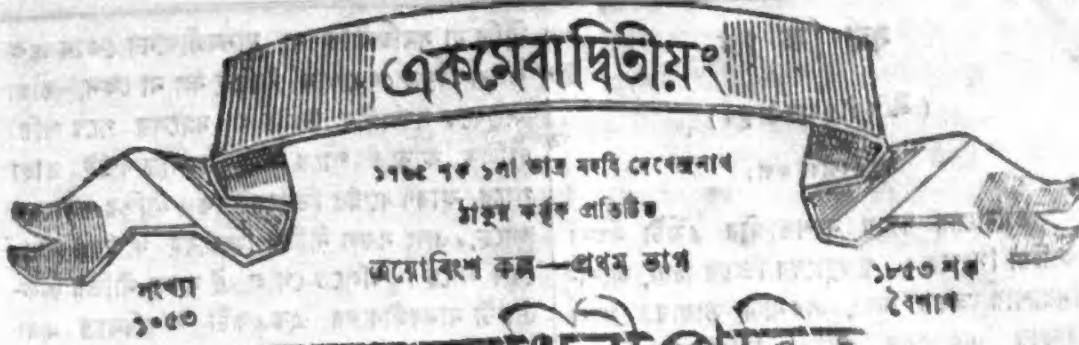 একমেবাদ্বিতীয়ং
১৭৬৫ শক ১লা ভাদ্র মহর্ষি দেবেন্দ্রনাথ
ঠাকুর কর্ত্তৃক প্রতিষ্ঠিত
ত্রয়োবিংশ কল্প—প্রথম ভাগ
সংখ্যা
১০৫৩
১৮৫৩ শক
বৈশাখ